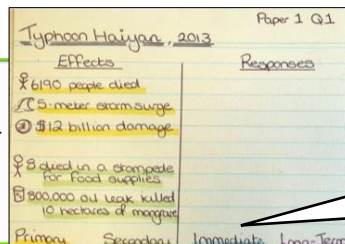 Paper 1 Q1
Typhoon Haiyan, 2013
Effects
6190 people died
5-meter storm surge
$12 billion damage
8 died in a stampede
for food supplies
800,000 oil leak killed
10 hectares of mangrove
Primary Secondary
Responses
Immediate Long-Term